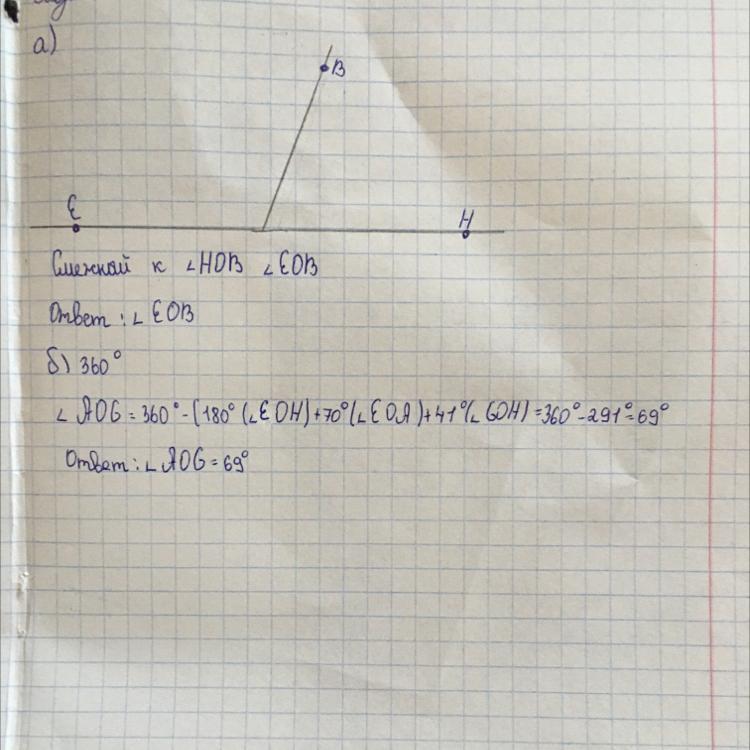 а)
B
E
H
Смежный к ∠HOB ∠EOB
Ответ: ∠EOB
б) 360°
∠AOG = 360° - (180° (∠EOH) + 70° (∠EOA) + 41° (∠GOH) = 360° - 291° = 69°
Ответ: ∠AOG = 69°